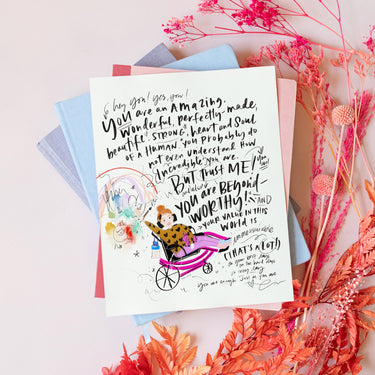 hey you! yes, you!
YOU are an AMAZING,
wonderful, perfectly made,
beautiful, STRONG, heart and Soul
of a HUMAN. YOU probably do
not even understand HOW
Incredible you are.
BUT TRUST ME!
YOU ARE BEYOND
WORTHY! AND
YOUR VALUE IN THIS
World is
immeasurable
(THAT'S A LOT!)
on your best days
on the hard days
every day
You are enough Just as you are